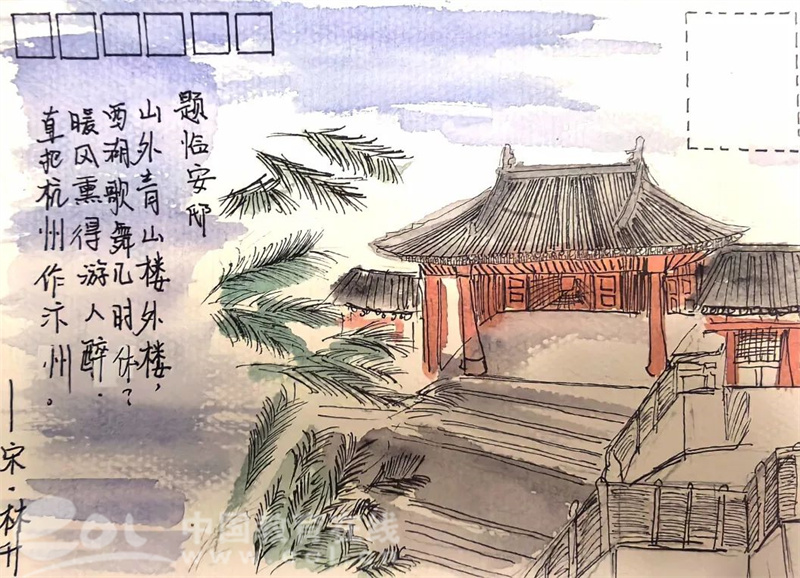 题临安邸
山外青山楼外楼，
西湖歌舞几时休？
暖风熏得游人醉.
直把杭州作汴州。
—宋·林升
eol 中国教育在线